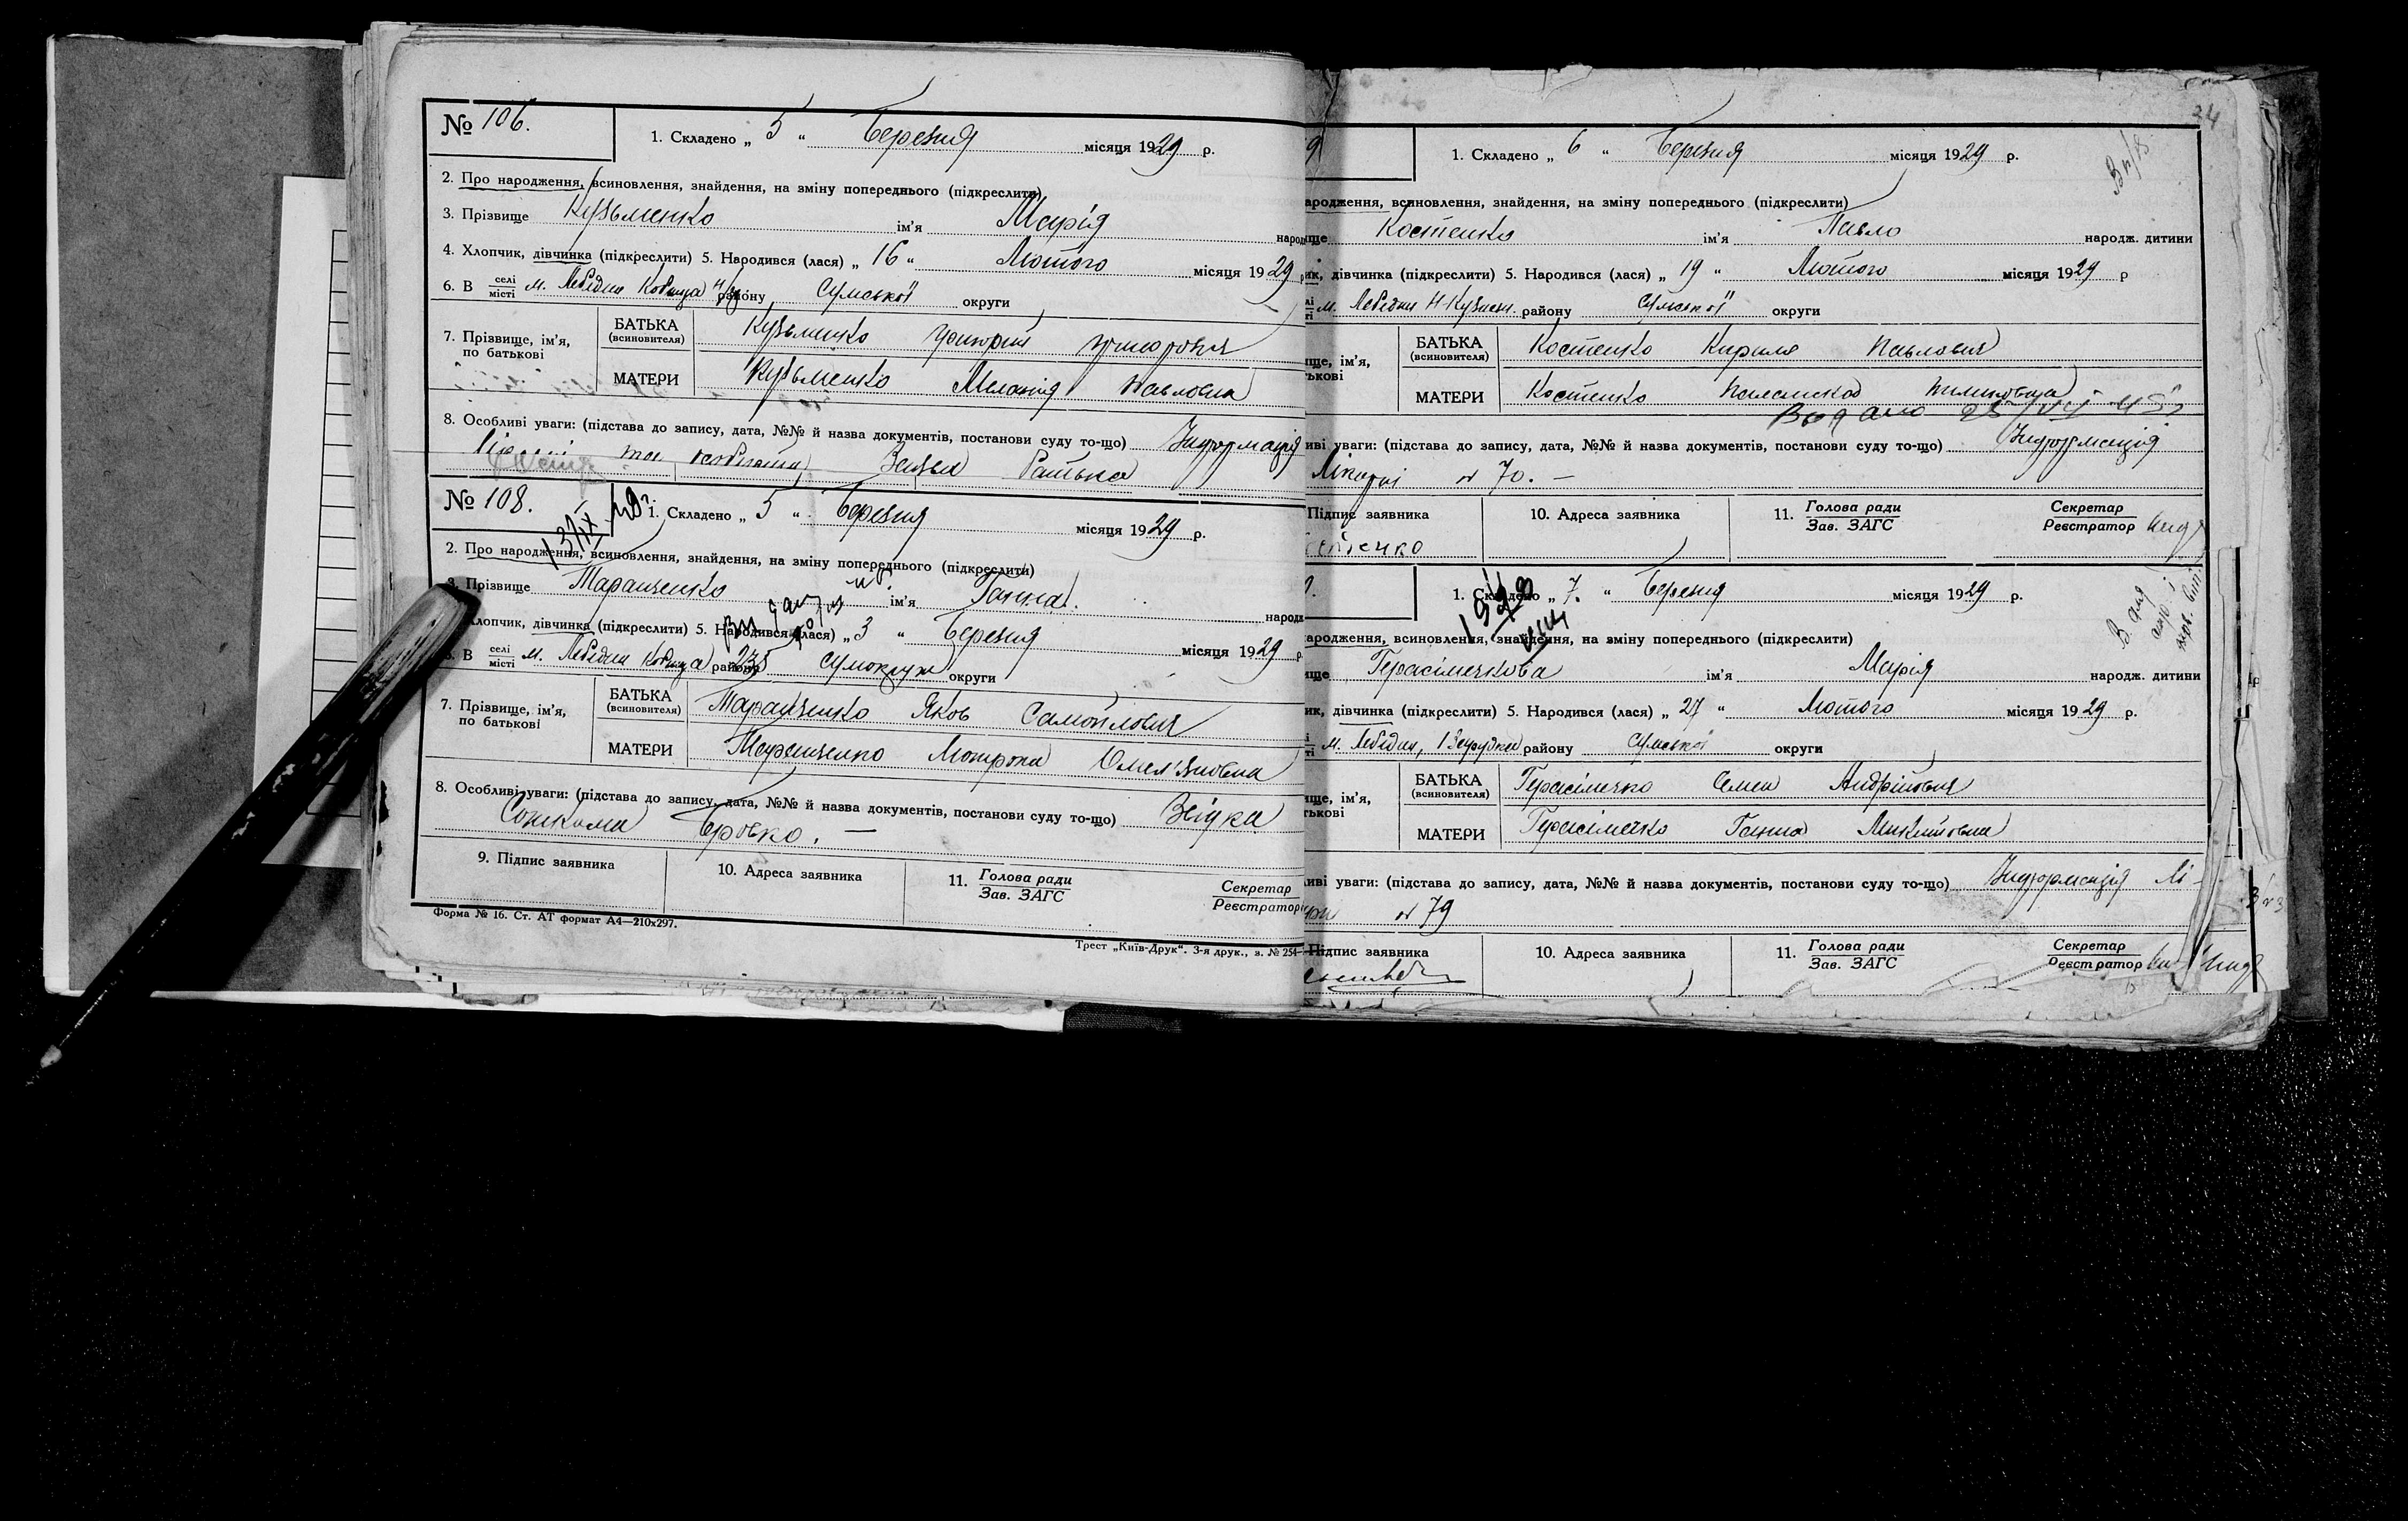 № 106.
1. Складено „ 5 “ Березня місяця 1929 р.
2. Про народження, всиновлення, знайдення, на зміну попереднього (підкреслити)
3. Прізвище Кузьменко ім’я Марія народ
4. Хлопчик, дівчинка (підкреслити) 5. Народився (лася) „ 16 “ Лютого місяця 1929 р
6. В селі місті м. Лебедин району Сумської округи
7. Прізвище, ім’я, по батькові
БАТЬКА (всиновителя) Кузьменко Григорій Григорович
МАТЕРИ Кузьменко Меланія Павловна
8. Особливі уваги: (підстава до запису, дата, №№ й назва документів, постанови суду то-що) Інформація
та Заява батька
№ 108.
1. Складено „ 5 “ Березня місяця 1929 р.
2. Про народження, всиновлення, знайдення, на зміну попереднього (підкреслити)
3. Прізвище Таранченко ім’я Ганна. народ
Хлопчик, дівчинка (підкреслити) 5. Народився (лася) „ 3 “ Березня місяця 1929 р
В селі місті м. Лебедин району Сумокруги округи
7. Прізвище, ім’я, по батькові
БАТЬКА (всиновителя) Таранченко Яков Самойлович
МАТЕРИ Таранченко Мотрона Омел’яновна
8. Особливі уваги: (підстава до запису, дата, №№ й назва документів, постанови суду то-що)
9. Підпис заявника
10. Адреса заявника
11. Голова ради Зав. ЗАГС
Секретар Реєстратор
Форма № 16. Ст. АТ формат А4—210х297.
Трест „Київ-Друк“. 3-я друк., з. № 254-
34
9
1. Складено „ 6 “ Березня місяця 1929 р.
ародження, всиновлення, знайдення, на зміну попереднього (підкреслити)
ище Костенко ім’я Павло народж. дитини
ик, дівчинка (підкреслити) 5. Народився (лася) „ 19 “ Лютого місяця 1929 р
м. Лебедин району Сумської округи
ище, ім’я, тькові
БАТЬКА (всиновителя) Костенко Кирило Павлович
МАТЕРИ Костенко
Видано
иві уваги: (підстава до запису, дата, №№ й назва документів, постанови суду то-що) Інформація
Лікарні № 70. —
Підпис заявника
10. Адреса заявника
11. Голова ради Зав. ЗАГС
Секретар Реєстратор
1. Складено „ 7. “ Березня місяця 1929 р.
ародження, всиновлення, знайдення, на зміну попереднього (підкреслити)
ище Герасіменкова ім’я Марія народж. дитини
ик, дівчинка (підкреслити) 5. Народився (лася) „ 27 “ Лютого місяця 1929 р.
м. Лебедин, району Сумської округи
ище, ім’я, тькові
БАТЬКА (всиновителя) Герасіменко Семен Андрійович
МАТЕРИ Герасіменко Ганна Микитовна
иві уваги: (підстава до запису, дата, №№ й назва документів, постанови суду то-що) Інформація Лі-
№ 79
Підпис заявника
10. Адреса заявника
11. Голова ради Зав. ЗАГС
Секретар Реєстратор